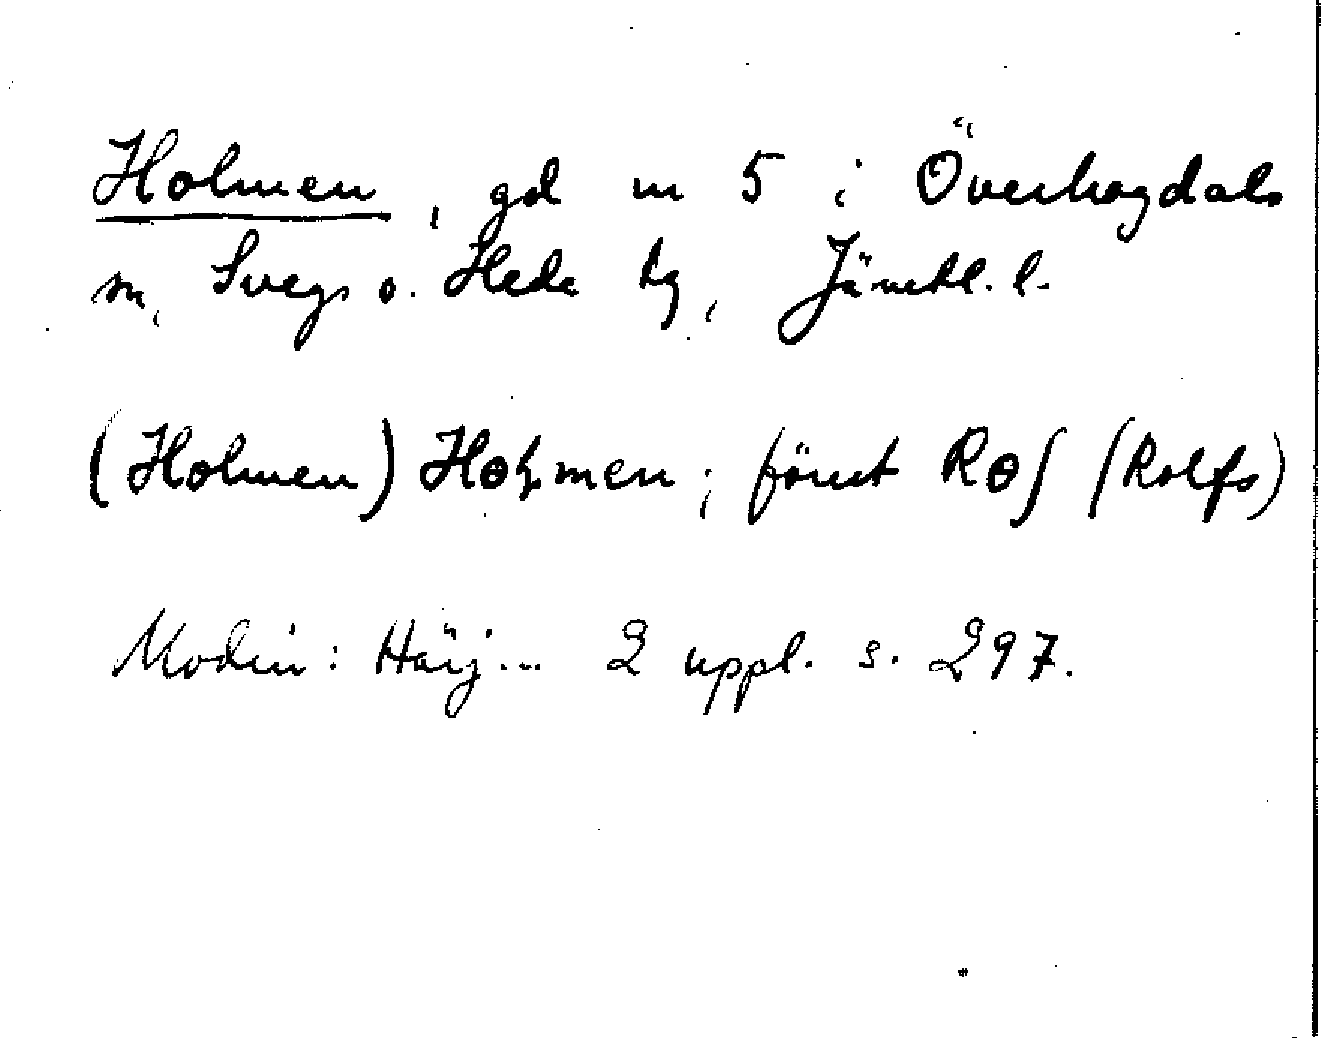 Holmen, gd nr 5 i Överhogdals
sn, Svegs o. Hede tg, Jämtl. l.
(Holmen) Hoɫmen; förut Ros (Rolfs)
Modin: Härj... 2 uppl. s. 297.